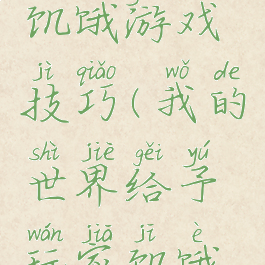 饥饿游戏
jì qiǎo wǒ de
技巧(我的
shì jiè gěi yú
世界给予
wán jiā jī è
玩家饥饿